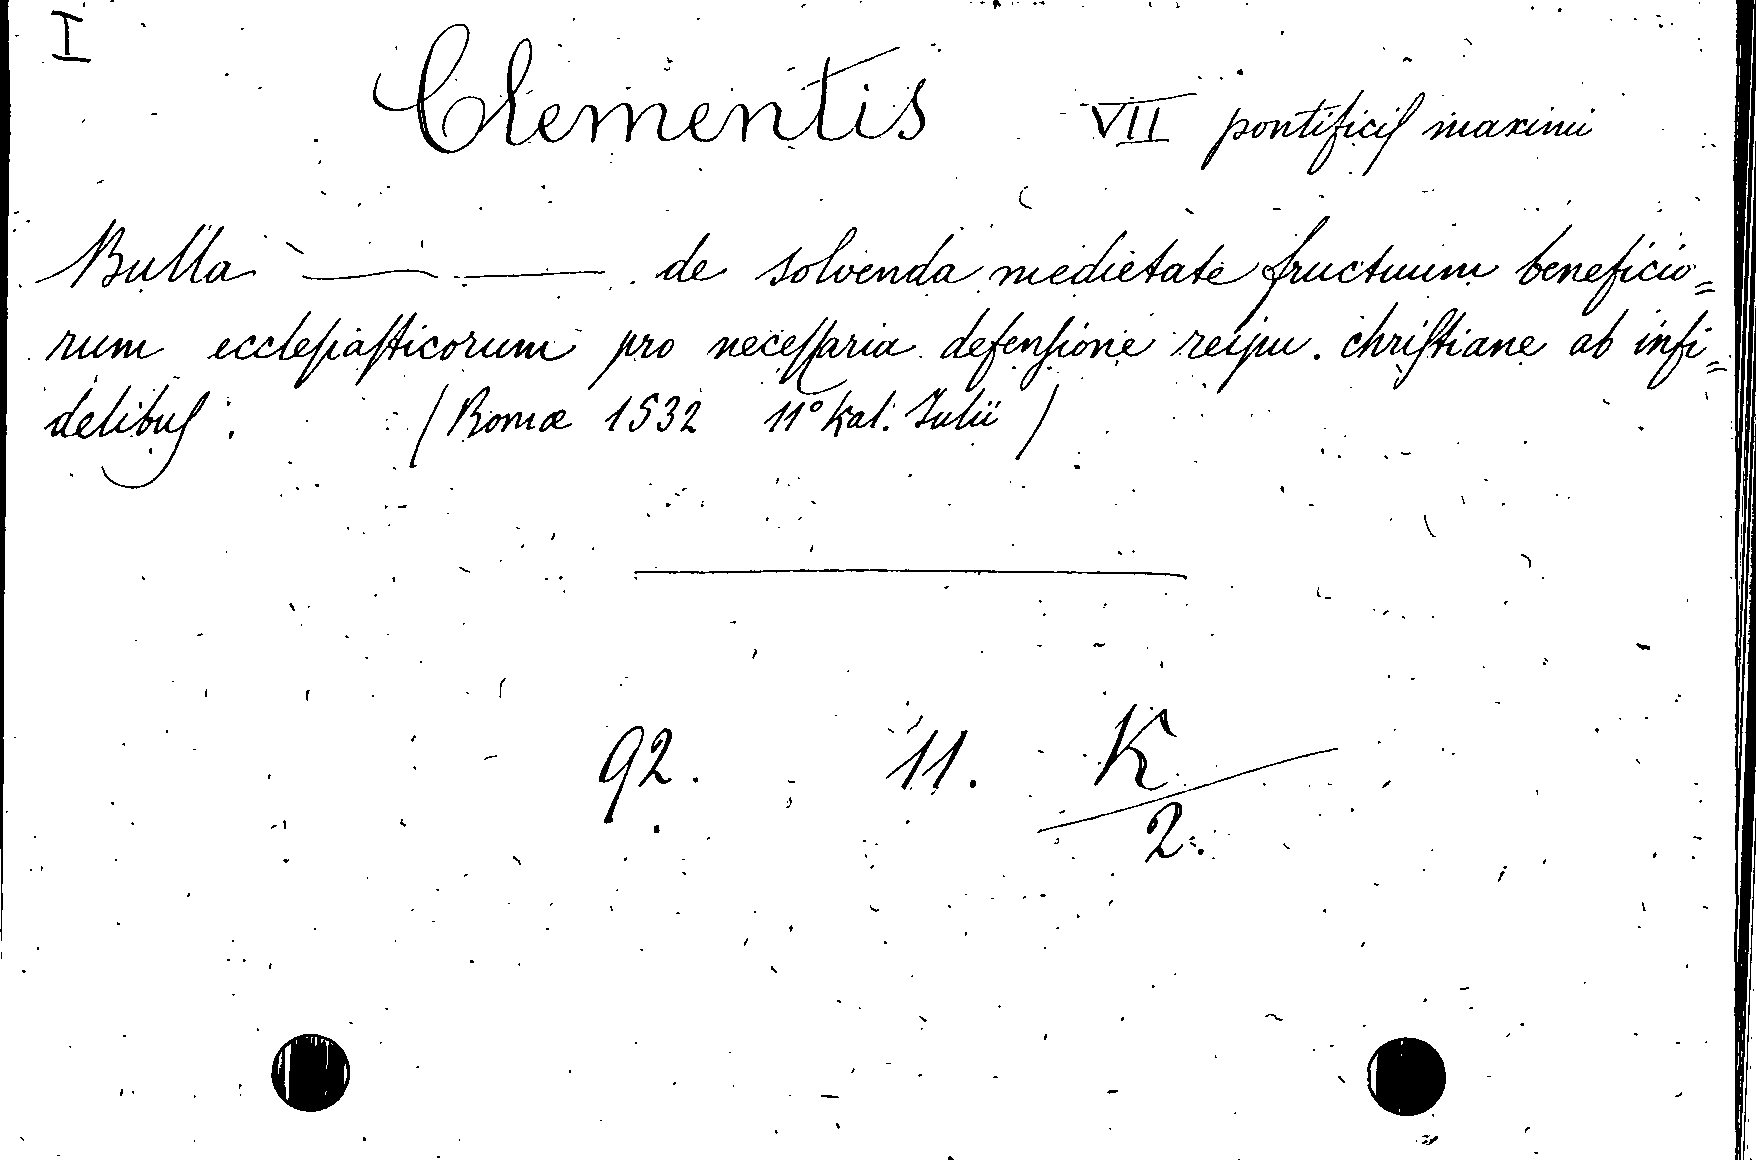 I
Clementis VII pontificis maximi
Bulla ——— de solvenda medietate fructuum beneficio=
rum ecclesiasticorum pro necessaria defensione reipu. christiane ab infi=
delibus. (Romæ 1532 11° Kal. Julii)
92. 11. K/2.